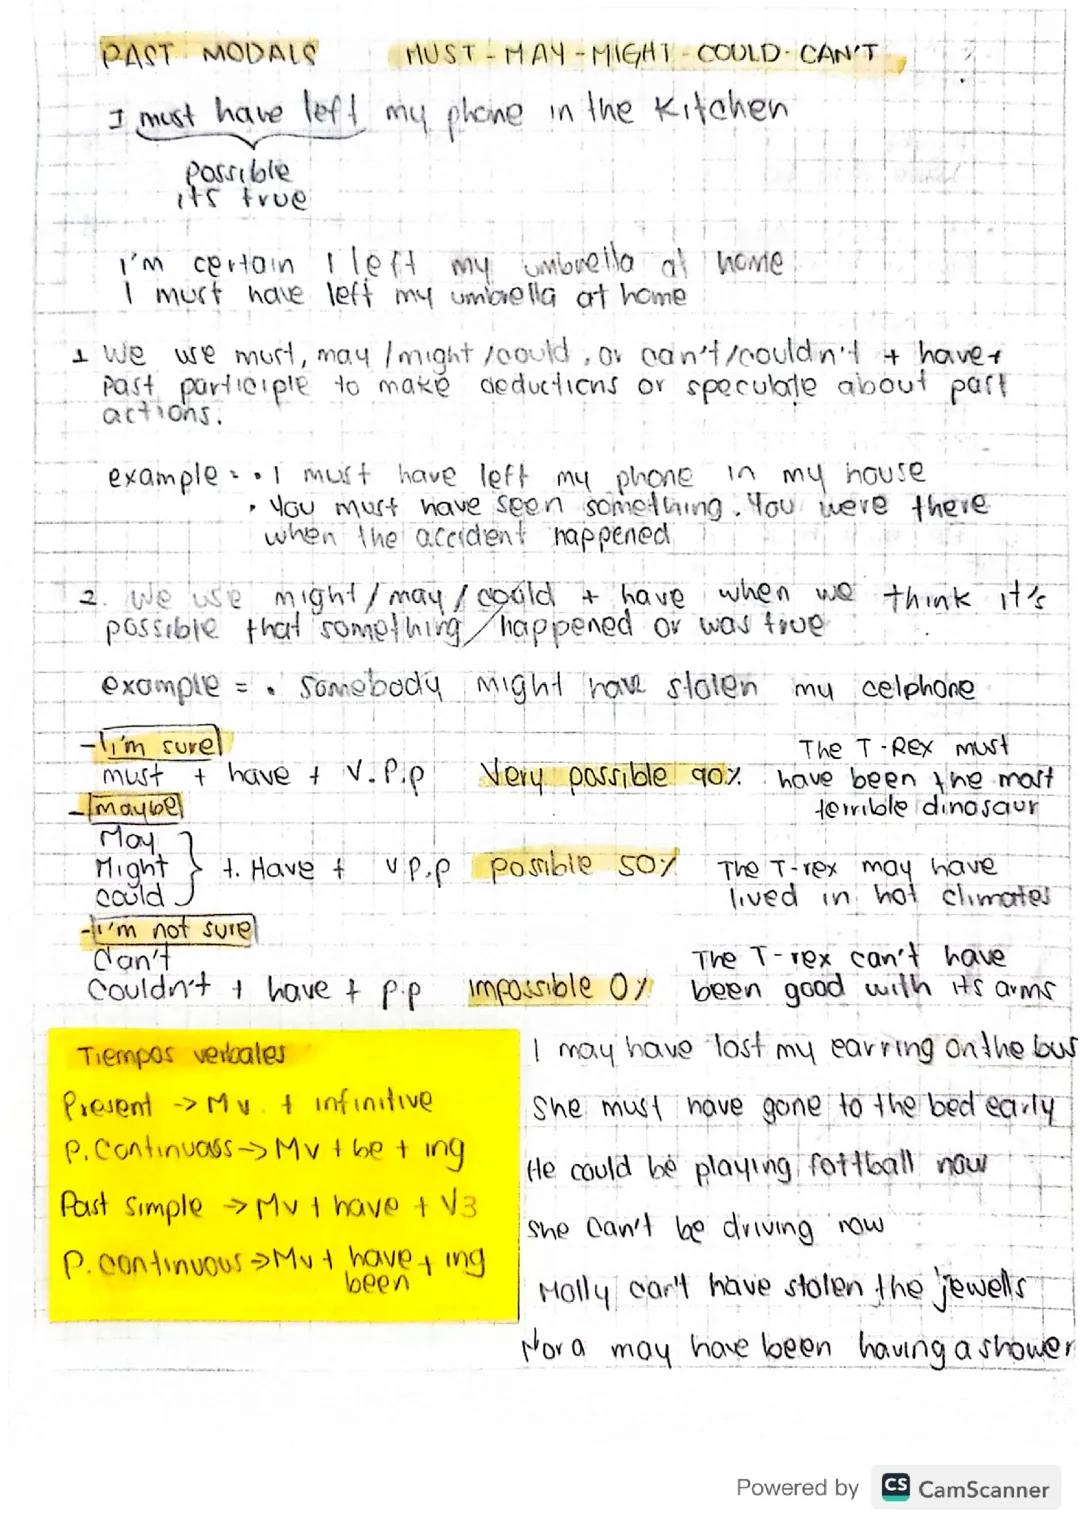 PAST MODALS MUST - MAY - MIGHT - COULD - CAN'T
I must have left my phone in the kitchen
possible
its true
I'm certain I left my umbrella at home
I must have left my umbrella at home
1 We use must, may / might / could, or can't / couldn't + have +
past participle to make deductions or speculate about past
actions.
example = • I must have left my phone in my house
• You must have seen something. You were there
when the accident happened
2. We use might / may / could + have when we think it's
possible that something / happened or was true
example = • Somebody might have stolen my celphone
- I'm sure
must + have + V.P.p Very possible 90% The T-Rex must
have been the most
terrible dinosaur
- maybe
May
Might
could
+. Have + V.P.p possible 50% The T-rex may have
lived in hot climates
- I'm not sure
Can't
Couldn't + have + p.p impossible 0% The T-rex can't have
been good with its arms
Tiempos verbales
Present -> Mv. + infinitive
P. Continuoss -> Mv + be + ing
Past simple -> Mv + have + V3
P. continuous => Mv + have + ing
been
I may have lost my earring on the bus
She must have gone to the bed early
He could be playing fottball now
She can't be driving now
Molly can't have stolen the jewells
Nora may have been having a shower
Powered by CS CamScanner